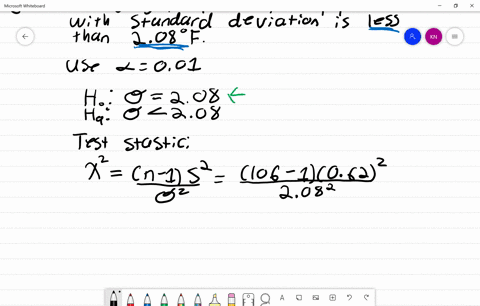 Microsoft Whiteboard
with standard deviation is less
than 2.08°F.
KN
Use α=0.01
H₀: σ = 2.08 ←
Hₐ: σ < 2.08
Test stastic:
χ² = (n-1)S² / σ² = (106-1)(0.62)² / 2.08²